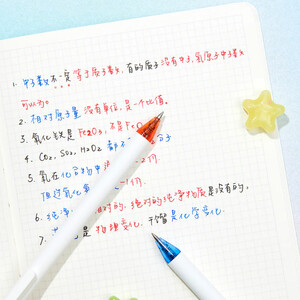 1. 中子数不一定等于质子数，有的原子没有中子，氢原子中子数
可以为0。
2. 相对原子量没有单位，是一个比值。
3. 氧化铁是Fe₂O₃，不是Fe
4. CO₂, SO₂, H₂O₂ 都不 分子
5. 氧在化合物中 -2价
但过氧化 -1价
6. 纯净 相对的，绝对的纯净物质是没有的，
7. 是物理变化，干馏是化学变化。